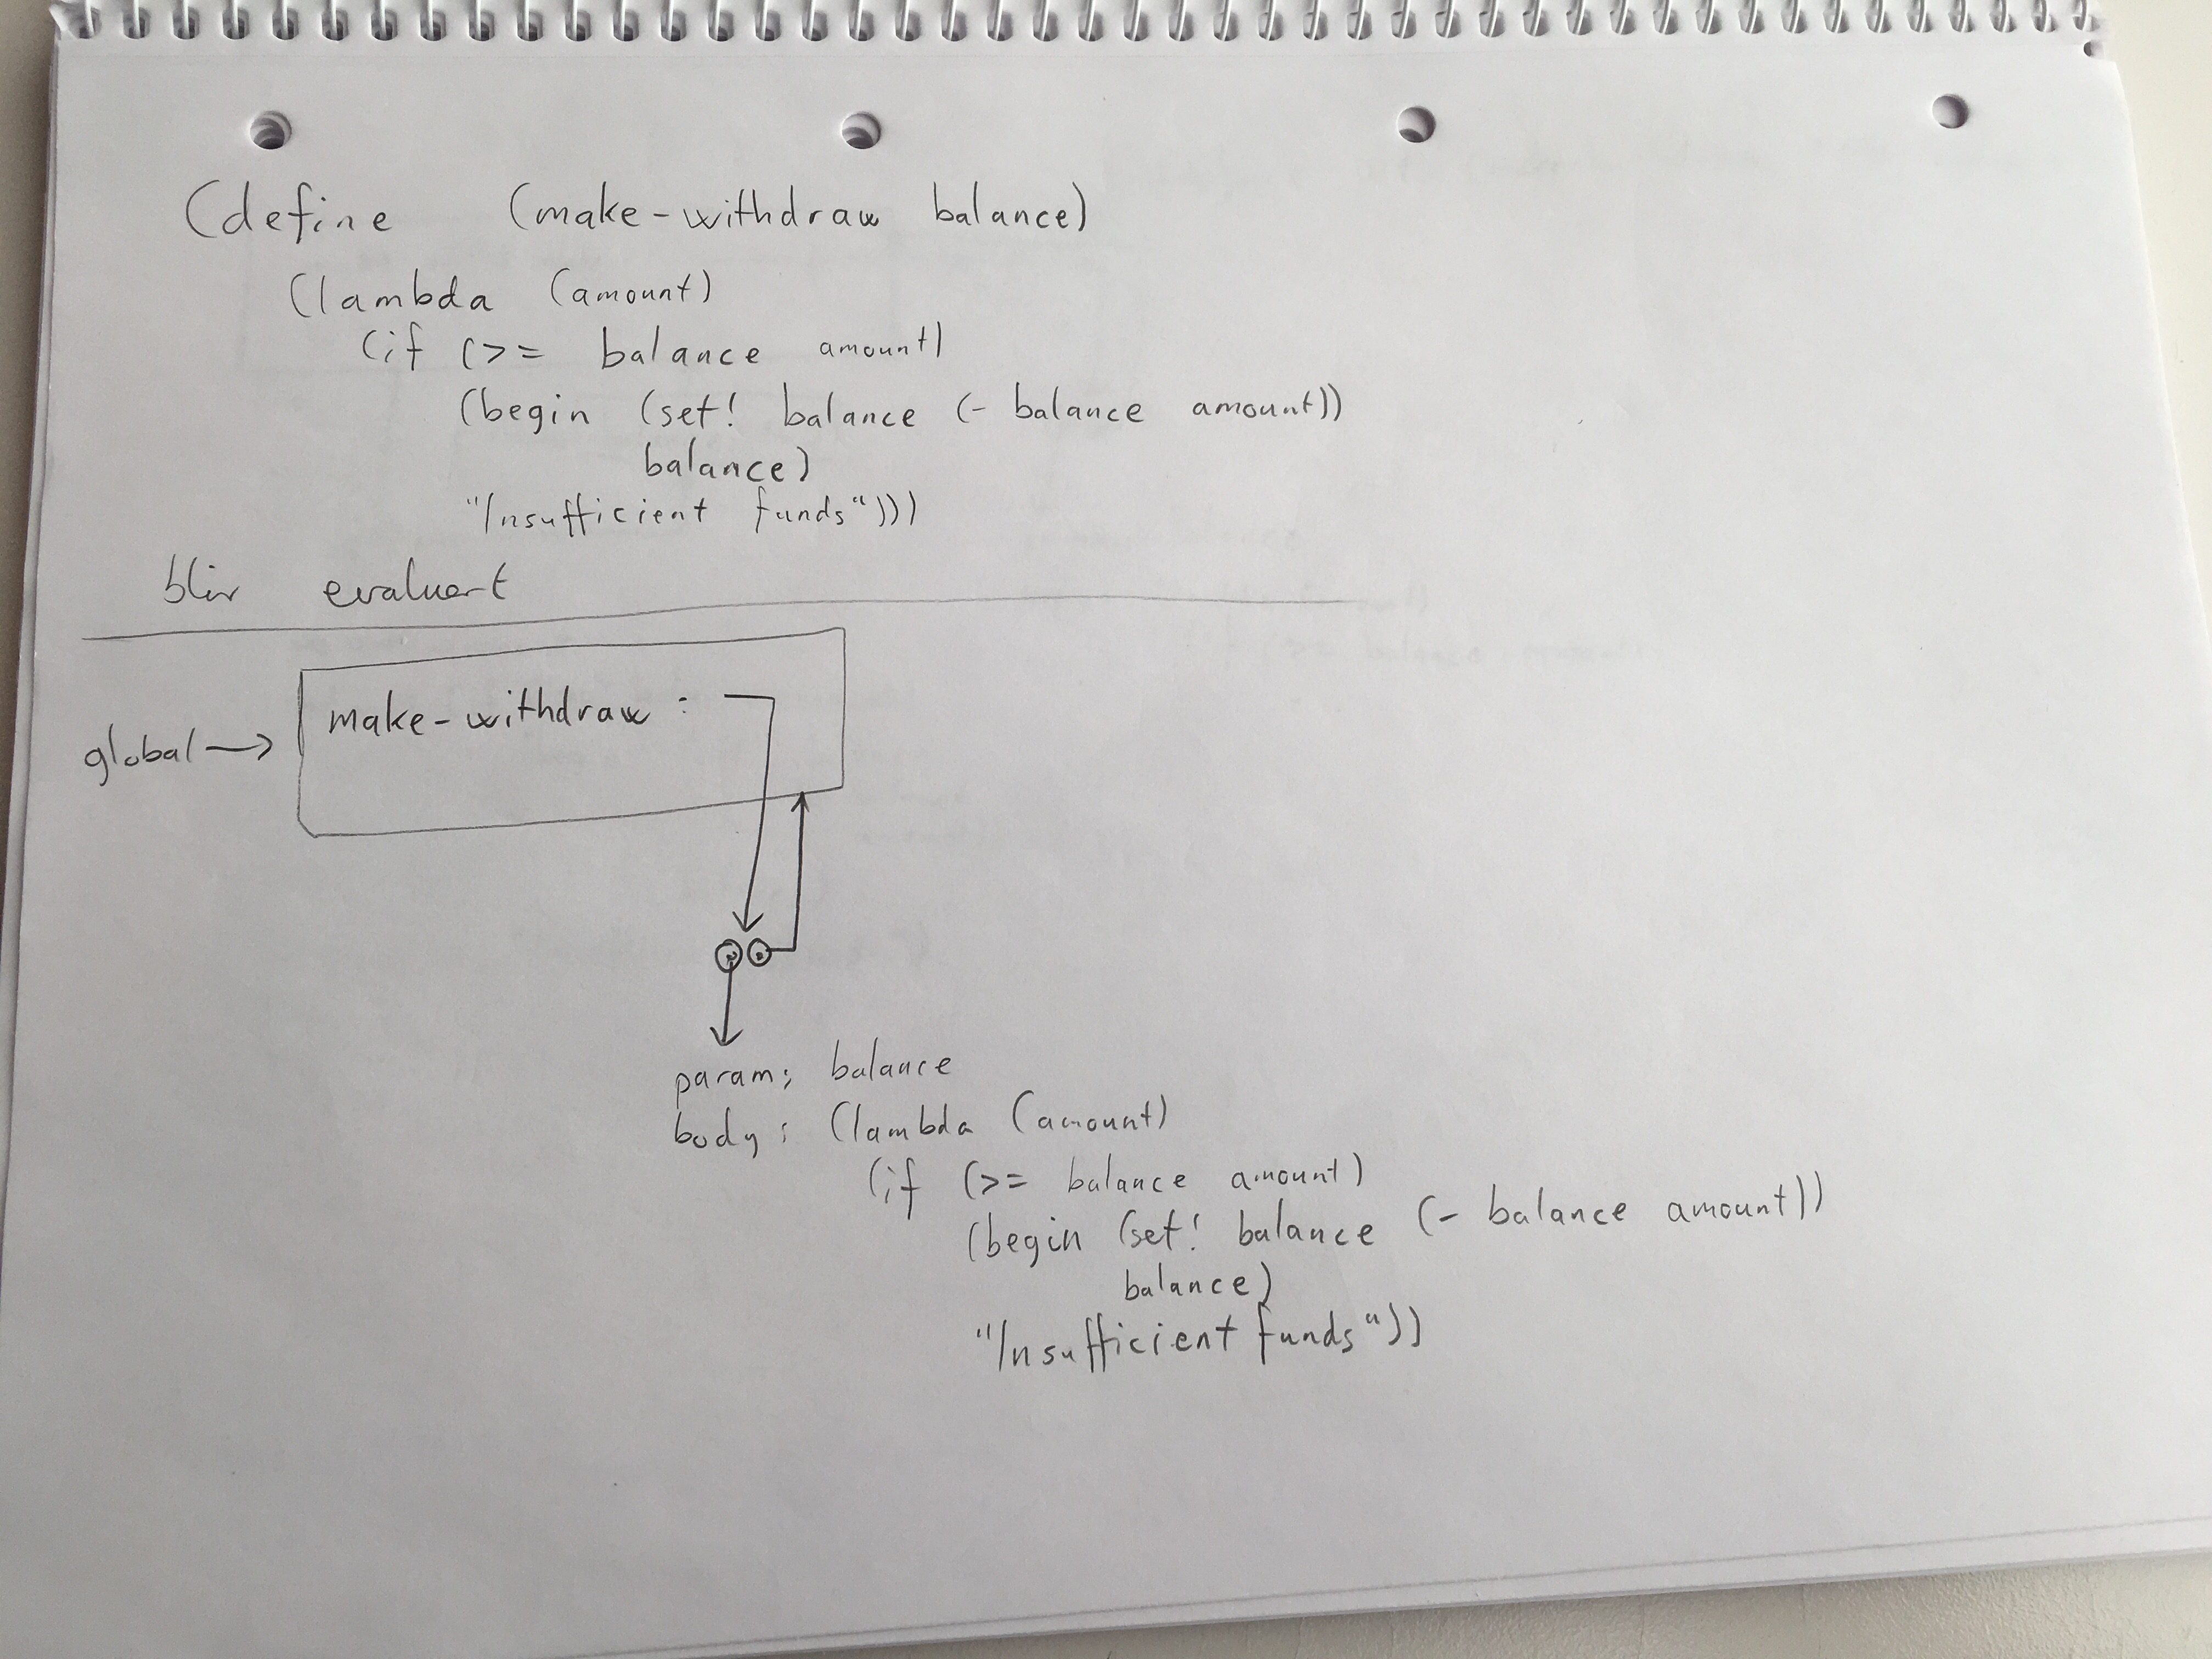 (define (make-withdraw balance)
(lambda (amount)
(if (>= balance amount)
(begin (set! balance (- balance amount))
balance)
"Insufficient funds")))
blir evaluert
make-withdraw :
global
param: balance
body: (lambda (amount)
(if (>= balance amount)
(begin (set! balance (- balance amount))
balance)
"Insufficient funds"))